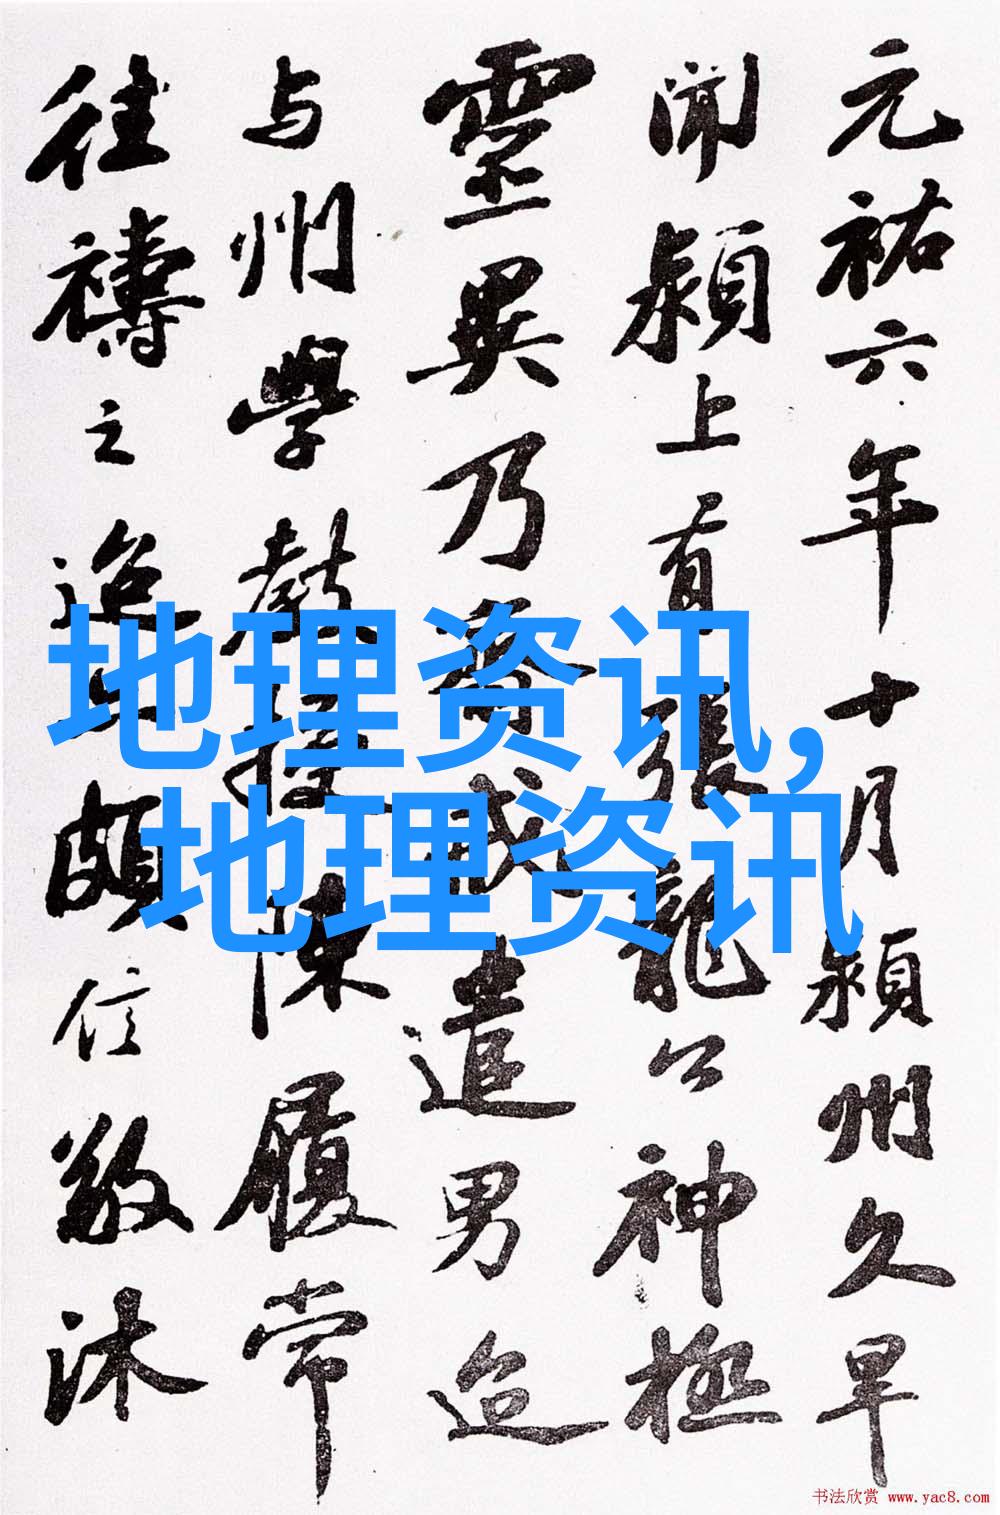 元祐六年十月颍州久旱
闻颍上有張龍公神極
靈異乃齋戒遣男迨
与州學教授陳履常
往禱之迨亦頗信敬沐
地理资讯,
地理资讯
书法欣赏 www.yac8.com